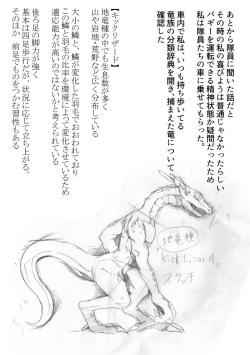 あとから隊員に聞いた話だと
その時の私の喜びようは普通じゃなかったらしい
バギーを運転できる精神状態か疑問だったため
私は隊員たちの車に乗せてもらった。
車内で私は、いつも持ち歩いてる
竜族の分類辞典を開き、捕まえた竜について
確認した
【キックリザード】
地竜種の中でも生息数が多く
山や岩地・荒野など広く分布している
大小の鱗と、鱗が変化した羽毛でおおわれており
この鱗と羽毛の比率を環境によって変化させているため
適応能力が高いのではないかと考えられている
後ろ足の脚力が強く
基本は四足歩行だが、状況に応じて立ち上がる。
そのほか、前足でものをつかむ習性もある
地竜種
Kick Lizardの
スケッチ